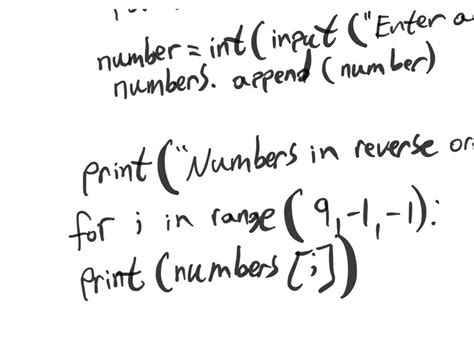 number = int(input("Enter a
numbers. append (number)
print("Numbers in reverse or
for i in range (9,-1,-1):
print (numbers [i])